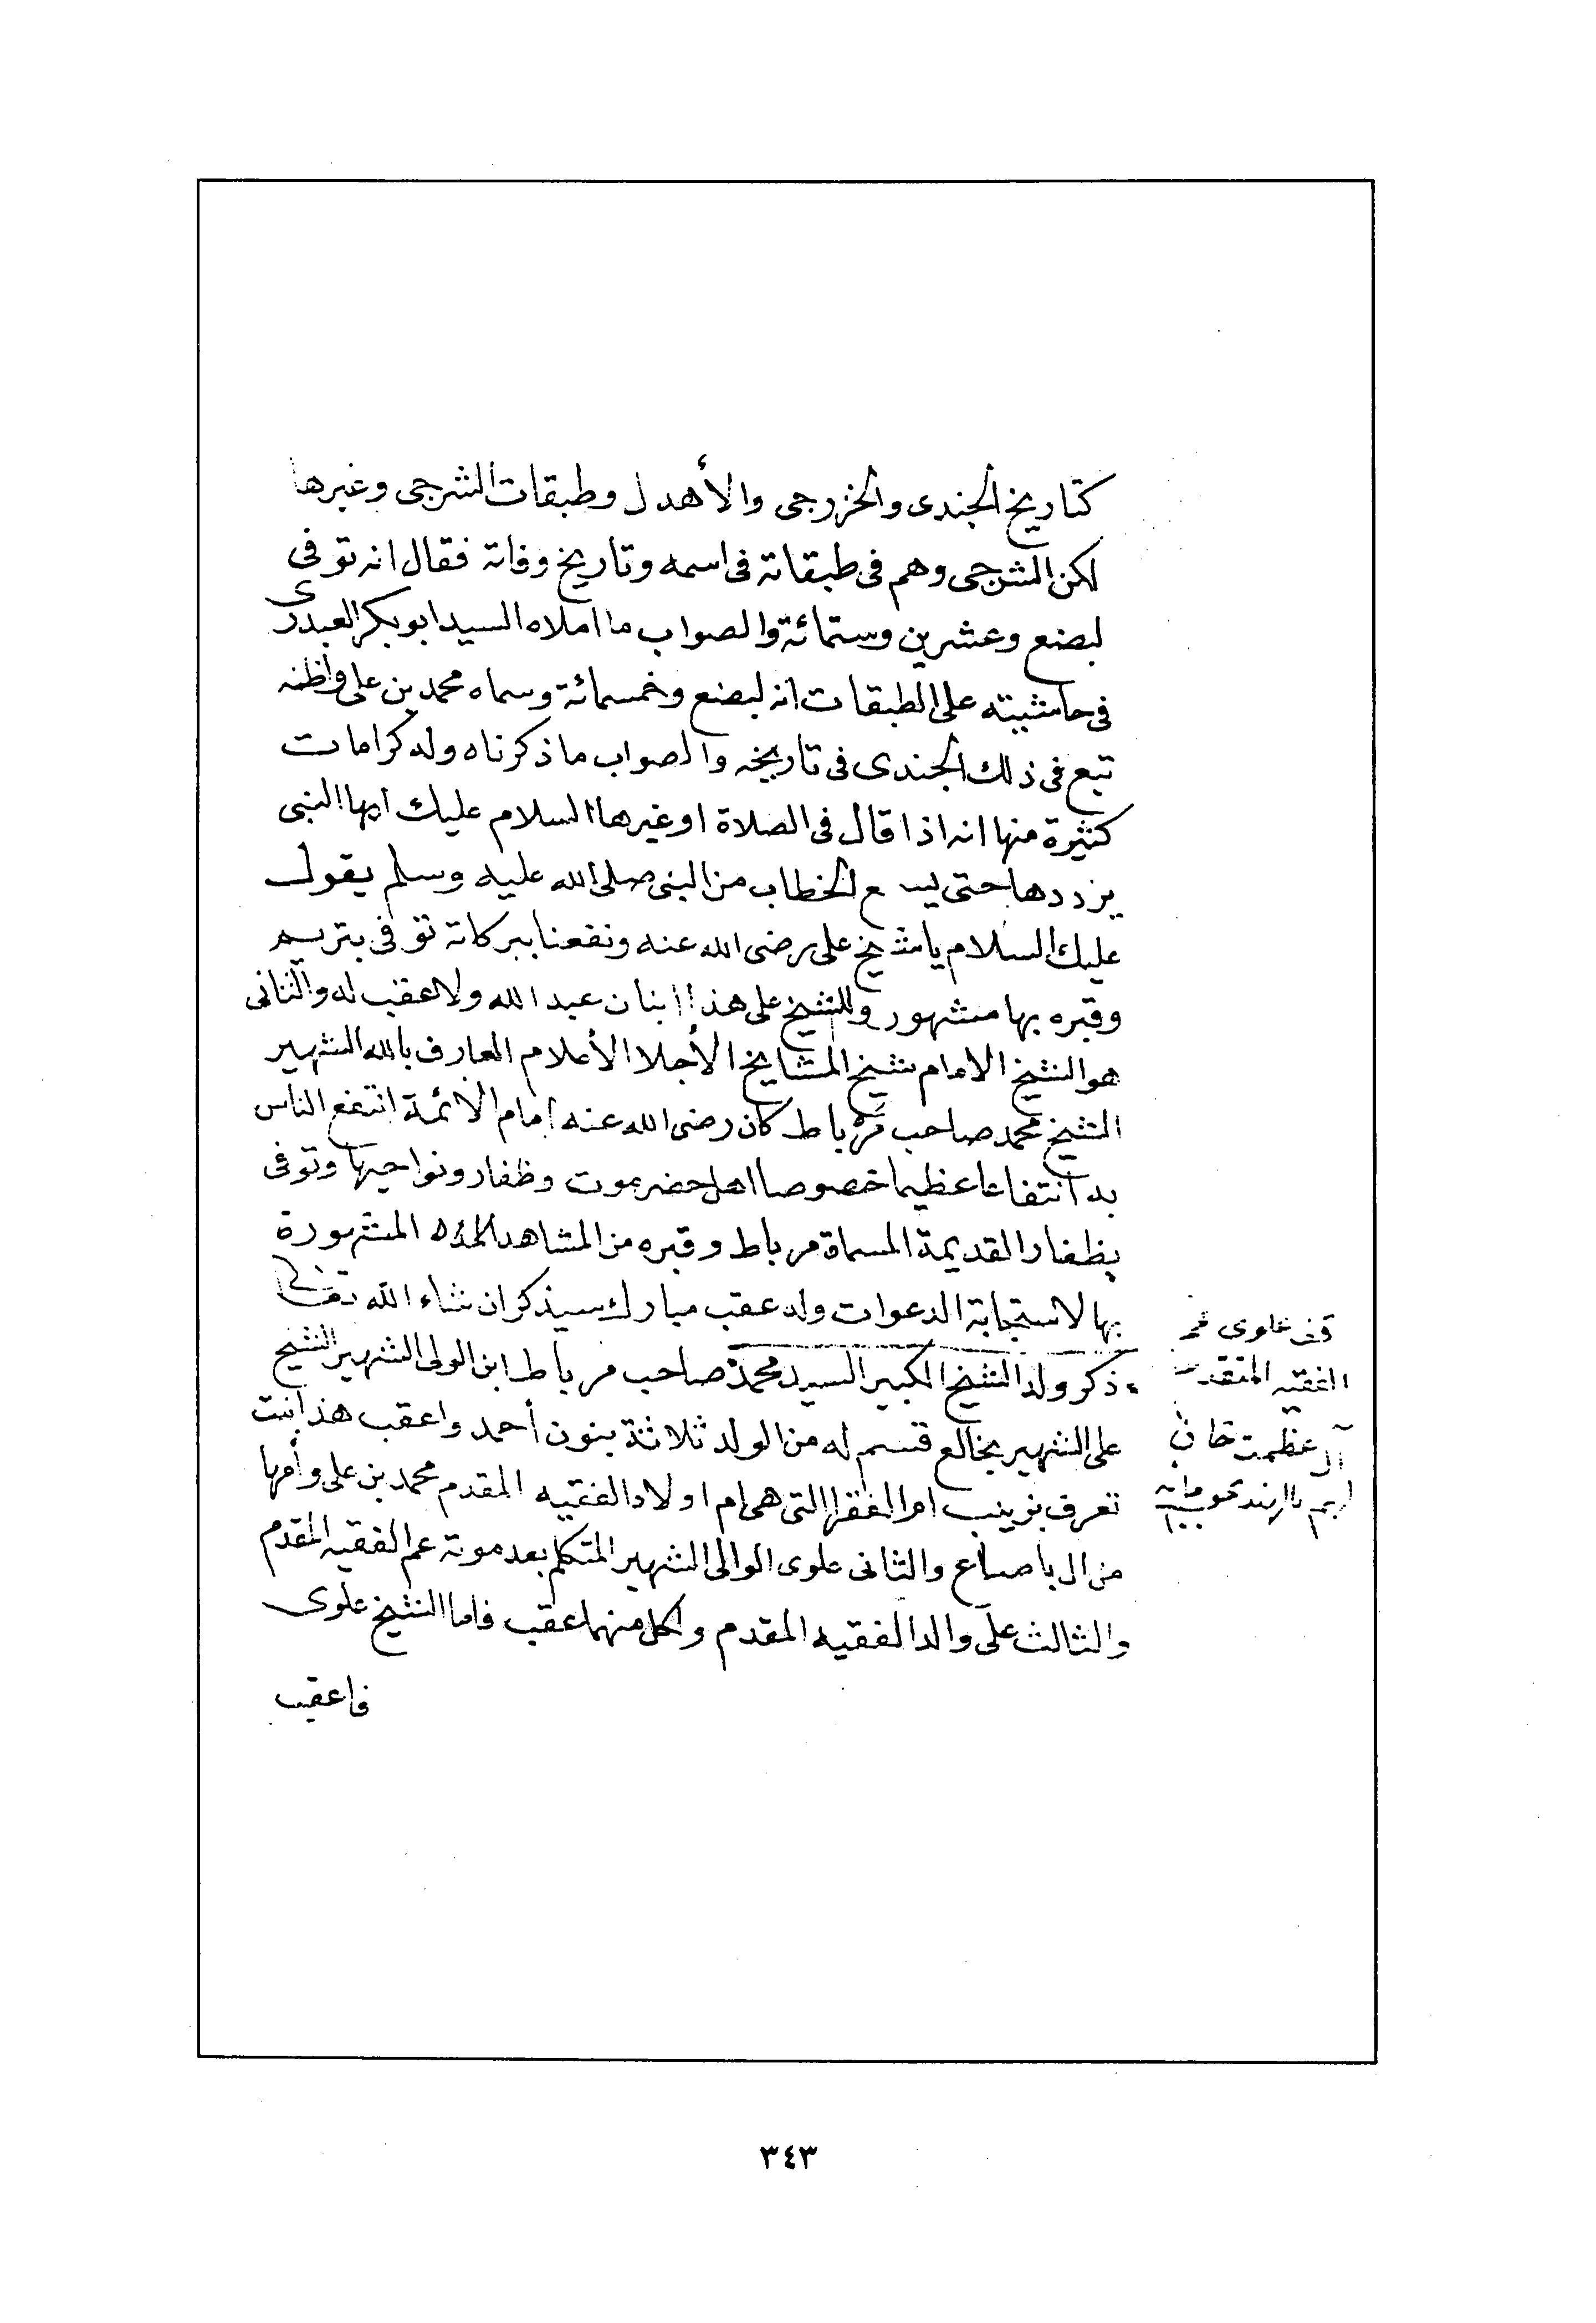 كتاريخ الجندى والخزرجى والأهدل وطبقات الشرجى وغيرها
لكن الشرجى وهم فى طبقاته فى اسمه وتاريخ وفاته فقال انه توفى
لبضع وعشرين وستمائة والصواب ما املاه السيد ابو بكر العيدروس
فى حاشيته على الطبقات انه لبضع وخمسمائة وسماه محمد بن على واظنه
تبع فى ذلك الجندى فى تاريخه والصواب ما ذكرناه وله كرامات
كثيرة منها انه اذا قال فى الصلاة او غيرها السلام عليك ايها النبى
يرددها حتى يسمع الخطاب من النبى صلى الله عليه وسلم يقول
عليك السلام يا شيخ على رضى الله عنه ونفعنا ببركاته توفى بتريم
وقبره بها مشهور وللشيخ على هذا ابنان عبد الله ولا عقب له والثانى
هو الشيخ الامام شيخ المشايخ الأجلا الأعلام العارف بالله الشهير
الشيخ محمد صاحب مرباط كان رضى الله عنه امام الائمة انتفع الناس
به انتفاعا عظيما خصوصا اهل حضرموت وظفار ونواحيها وتوفى
بظفار القديمة المسماة مرباط وقبره من المشاهد المشهورة
بها لاستجابة الدعوات وله عقب مبارك سيذكر ان شاء الله تعالى
ذكر ولد الشيخ الكبير السيد محمد صاحب مرباط ابن الولى الشهير الشيخ
على الشهير بخالع قسم له من الولد ثلاثة بنون أحمد واعقب هذا بنت
تعرف بزينب ام الفقرا التى هى ام اولاد الفقيه المقدم محمد بن على وأمها
من ال با صباع والثانى علوى الوالى الشهير المتكلم بعد موته عم الفقيه المقدم
والثالث على والد الفقيه المقدم ولكل منهما عقب فاما الشيخ علوى
فاعقب
قف علوى عم
الفقيه المقدم
آل عظمت خان
بالهند نحو مايه
٣٤٣